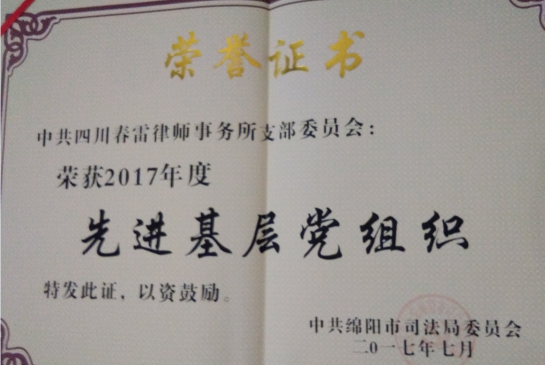 荣誉证书
中共四川春雷律师事务所支部委员会：
荣获2017年度
先进基层党组织
特发此证，以资鼓励。
中共绵阳市司法局委员会
二〇一七年七月